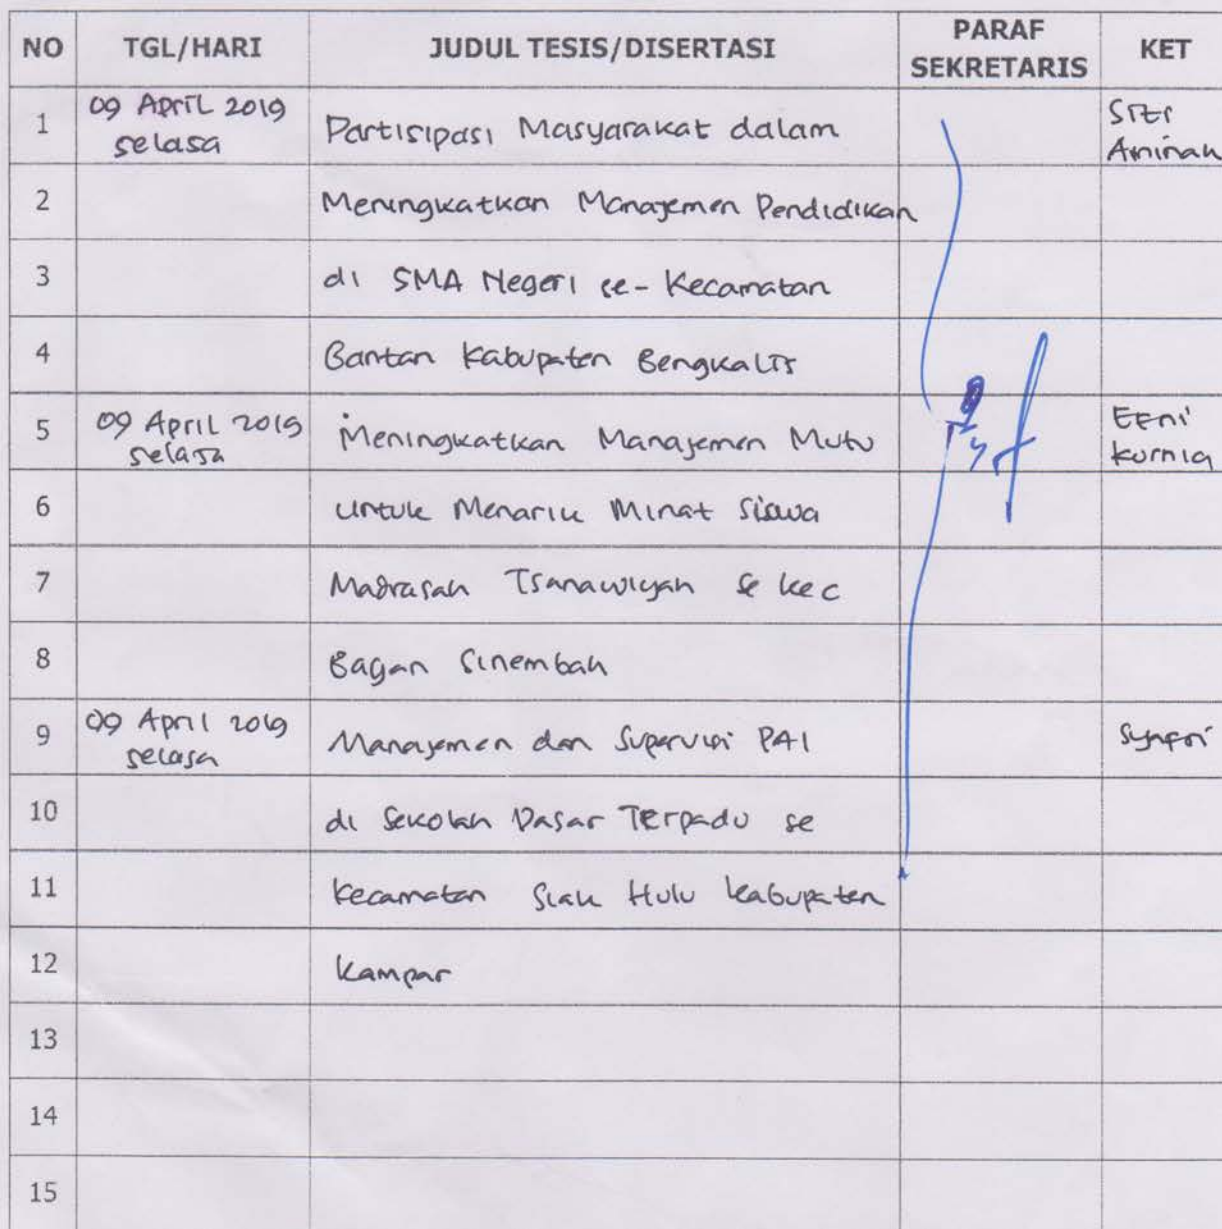 NO TGL/HARI JUDUL TESIS/DISERTASI PARAF SEKRETARIS KET
1 09 April 2019 selasa Partisipasi Masyarakat dalam Siti Aminah
2 Meningkatkan Manajemen Pendidikan
3 di SMA Negeri se-Kecamatan
4 Bantan Kabupaten Bengkalis
5 09 April 2019 selasa Meningkatkan Manajemen Mutu Efni Kurnia
6 untuk Menarik Minat Siswa
7 Madrasah Tsanawiyah se kec
8 Bagan Sinembah
9 09 April 2019 selasa Manajemen dan Supervisi PAI
10 di Sekolah Dasar Terpadu se
11 Kecamatan Siak Hulu Kabupaten
12 Kampar
13
14
15